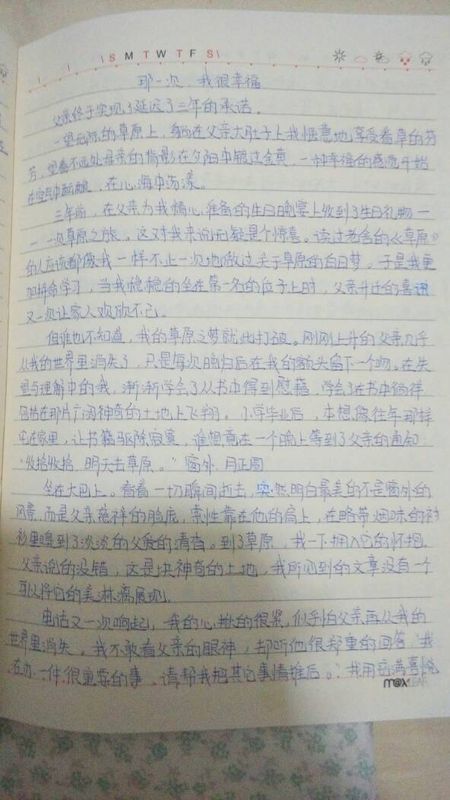 S M T W T F S
那一次 我很幸福
父亲终于实现了延误了三年的承诺。
一望无际的草原上,躺在父亲大肚子上我惬意地享受着草的芬
芳,望着不远处母亲的背影在夕阳中镀过金黄,一种幸福的感觉开始
在空气中酝酿,在心海中荡漾。
三年前,在父亲为我精心准备的生日晚宴上收到了生日礼物—
—一次草原之旅。这对我来说无疑是个惊喜。读过老舍的《草原》
的人应该都像我一样不止一次地做过关于草原的白日梦。于是我更
加拼命学习,当我稳稳的坐在第一名的位子上时,父亲升迁的喜讯
又一次让家人欢欣不已。
但谁也不知道,我的草原之梦就此打破。刚刚上升的父亲几乎
从我的世界里消失了,只是每次晚归后在我的额头留下一个吻。在失
望与理解中的我,渐渐学会了从书中得到慰藉,学会了在书中徜徉
在那片广阔神奇的土地上飞翔。小学毕业后,本想像往年那样
宅在家里,让书籍驱除寂寞,谁想竟在一个晚上等到了父亲的通知
“收拾收拾,明天去草原。”窗外,月正圆
坐在大巴上。看着一切瞬间逝去,突然明白最美的不是窗外的
风景,而是父亲慈祥的脸庞,索性靠在他的肩上,在略带烟味的衬
衫里嗅到了淡淡的父爱的清香。到了草原,我一下拥入它的怀抱,
父亲说的没错,这是块神奇的土地,我所见到的文章没有一个
可以将它的美淋漓展现。
电话又一次响起,我的心揪的很紧,似乎怕父亲再从我的
世界里消失。我不敢看父亲的眼神,却听他很郑重的回答“我
在办一件很重要的事,请帮我把其它事情推后。”我用充满喜悦
m@x LEAF